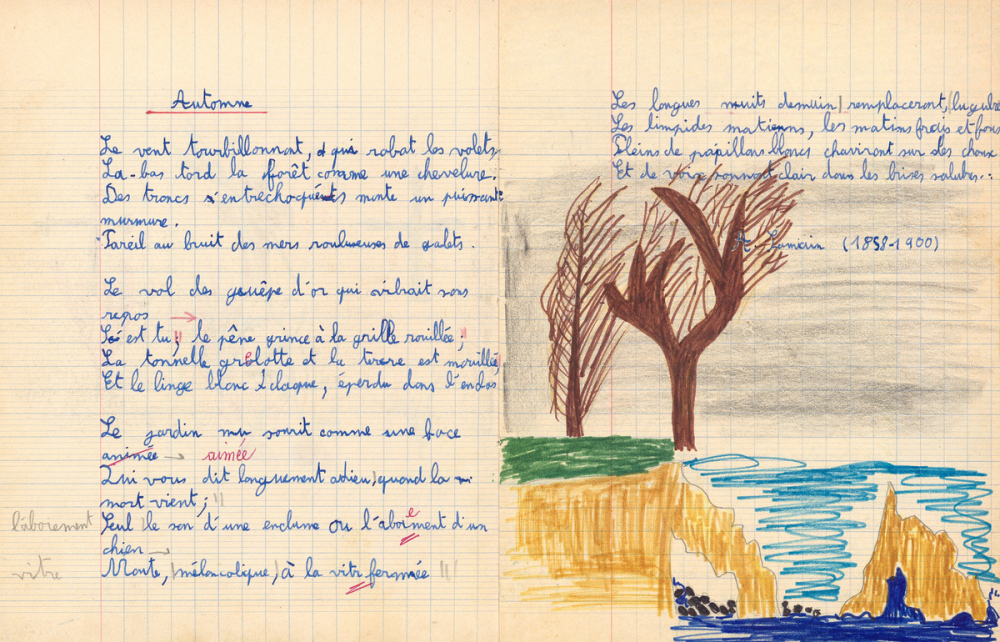 Automne
Le vent tourbillonnant, qui rabat les volets
La-bas tord la forêt comme une chevelure.
Des troncs s'entrechoquents monte un puissant
murmure.
Pareil au bruit des mers rouleuses de galets.
Le vol des guêpe d'or qui vibrait sans
repos
S'est tu; le pêne grince à la grille rouillée;
La tonnelle grelotte et la terre est mouillée
Et le linge blanc claque, éperdu dans l'enclos
Le jardin nu sourit comme une face
animée aimée
Qui vous dit longuement adieu, quand la
mort vient;
l'aborement Seul le son d'une enclume ou l'aboiement d'un
chien
vitre Monte, mélancolique, à la vitr fermée
Les longues nuits demain remplaceront,
Les limpides matienns, les matins frais et
Pleins de papillons blancs chaviront sur des choux
Et de voix sonnont clair dans les brises
(1858-1900)